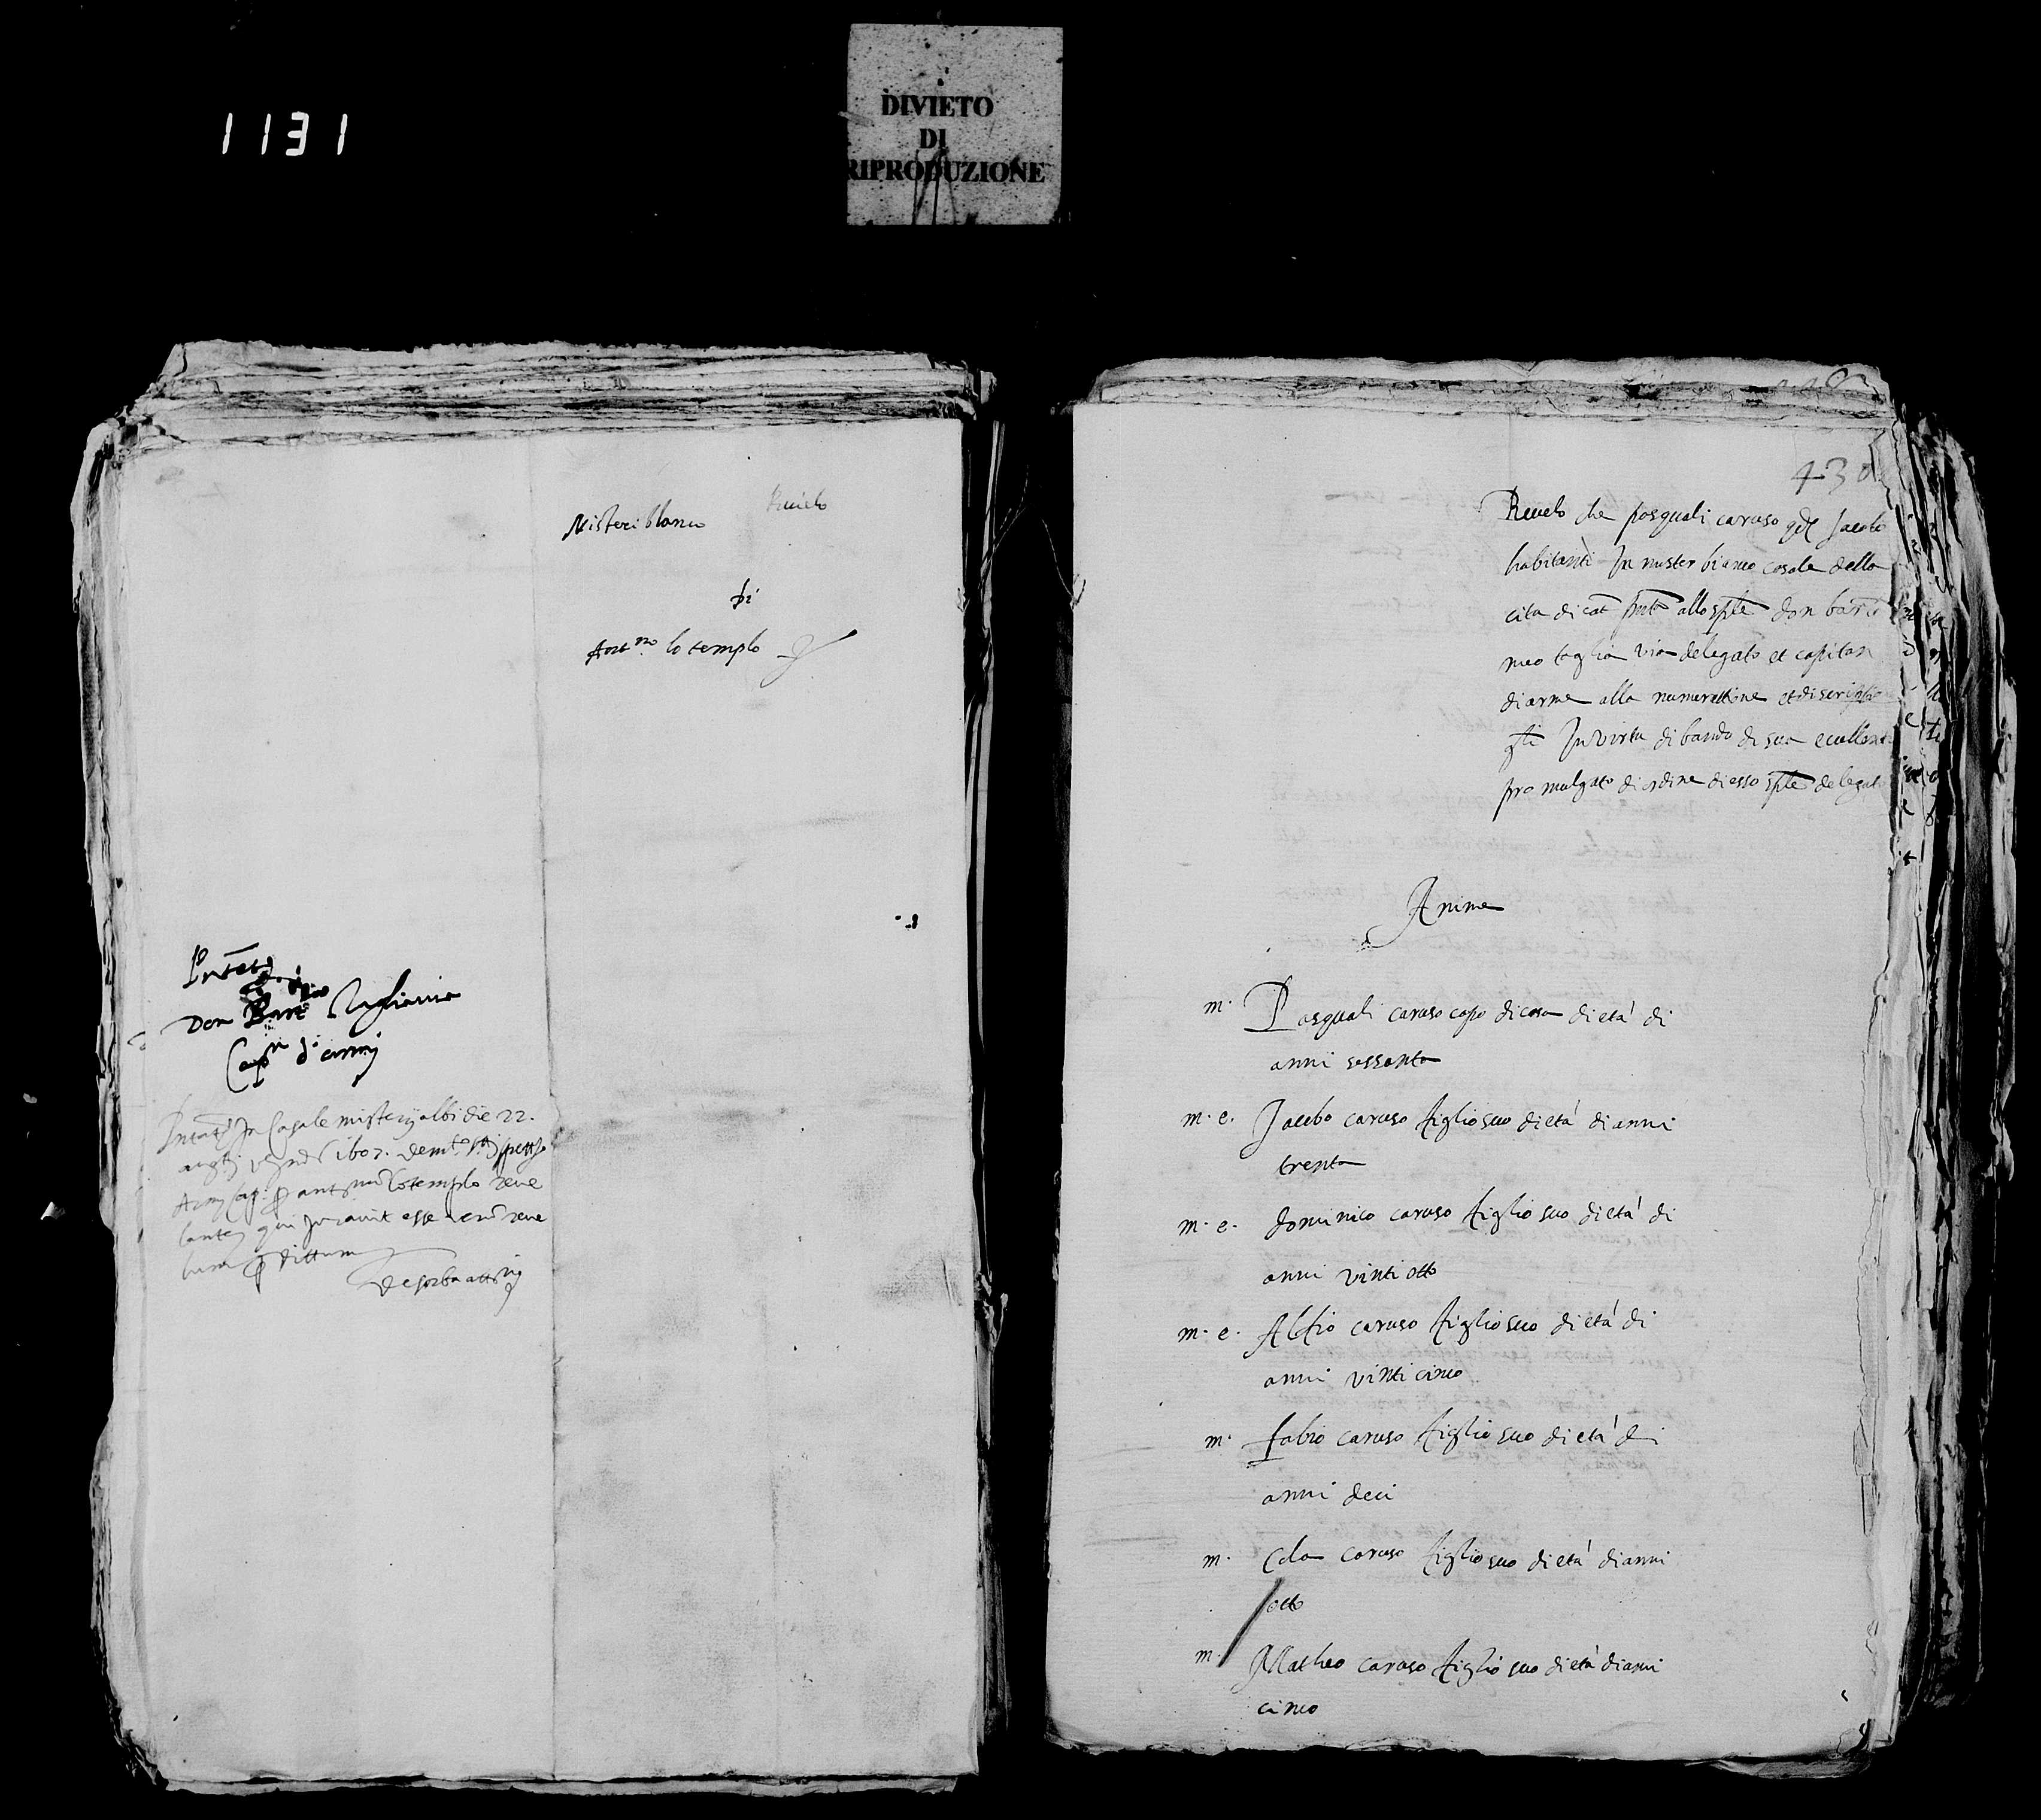 1131
DIVIETO
DI
RIPRODUZIONE
Rivelo
Misteriblanco
di
Ant.no lo templo
Don Bart.o Tagliavia
Cap.n d'armi
In Casale misterij albi die 22.
1607.
lo templo reve
qui juravit esse reve
430
Revelo che pasquali caruso qd Jacobo
habitanti In muster bianco casale della
cita di cat. pnto allo sple don bartō
meo taglia via delegato et capitan
diarme alla numerattione et discriptio
In virtu di bando di sua ecullent
pro mulgato di ordine di esso sple delegato
Anime
m. Pasquali caruso capo di casa di età di
anni sessanta
m. e. Jacobo caruso figlio suo di età di anni
trenta
m. e. dominico caruso figlio suo di età di
anni vinti otto
m. e. Alfio caruso figlio suo di età di
anni vinti cinco
m. fabio caruso figlio suo di età di
anni deci
m. Cola caruso figlio suo di età di anni
otto
m. Matheo caruso figlio suo di età di anni
cinco